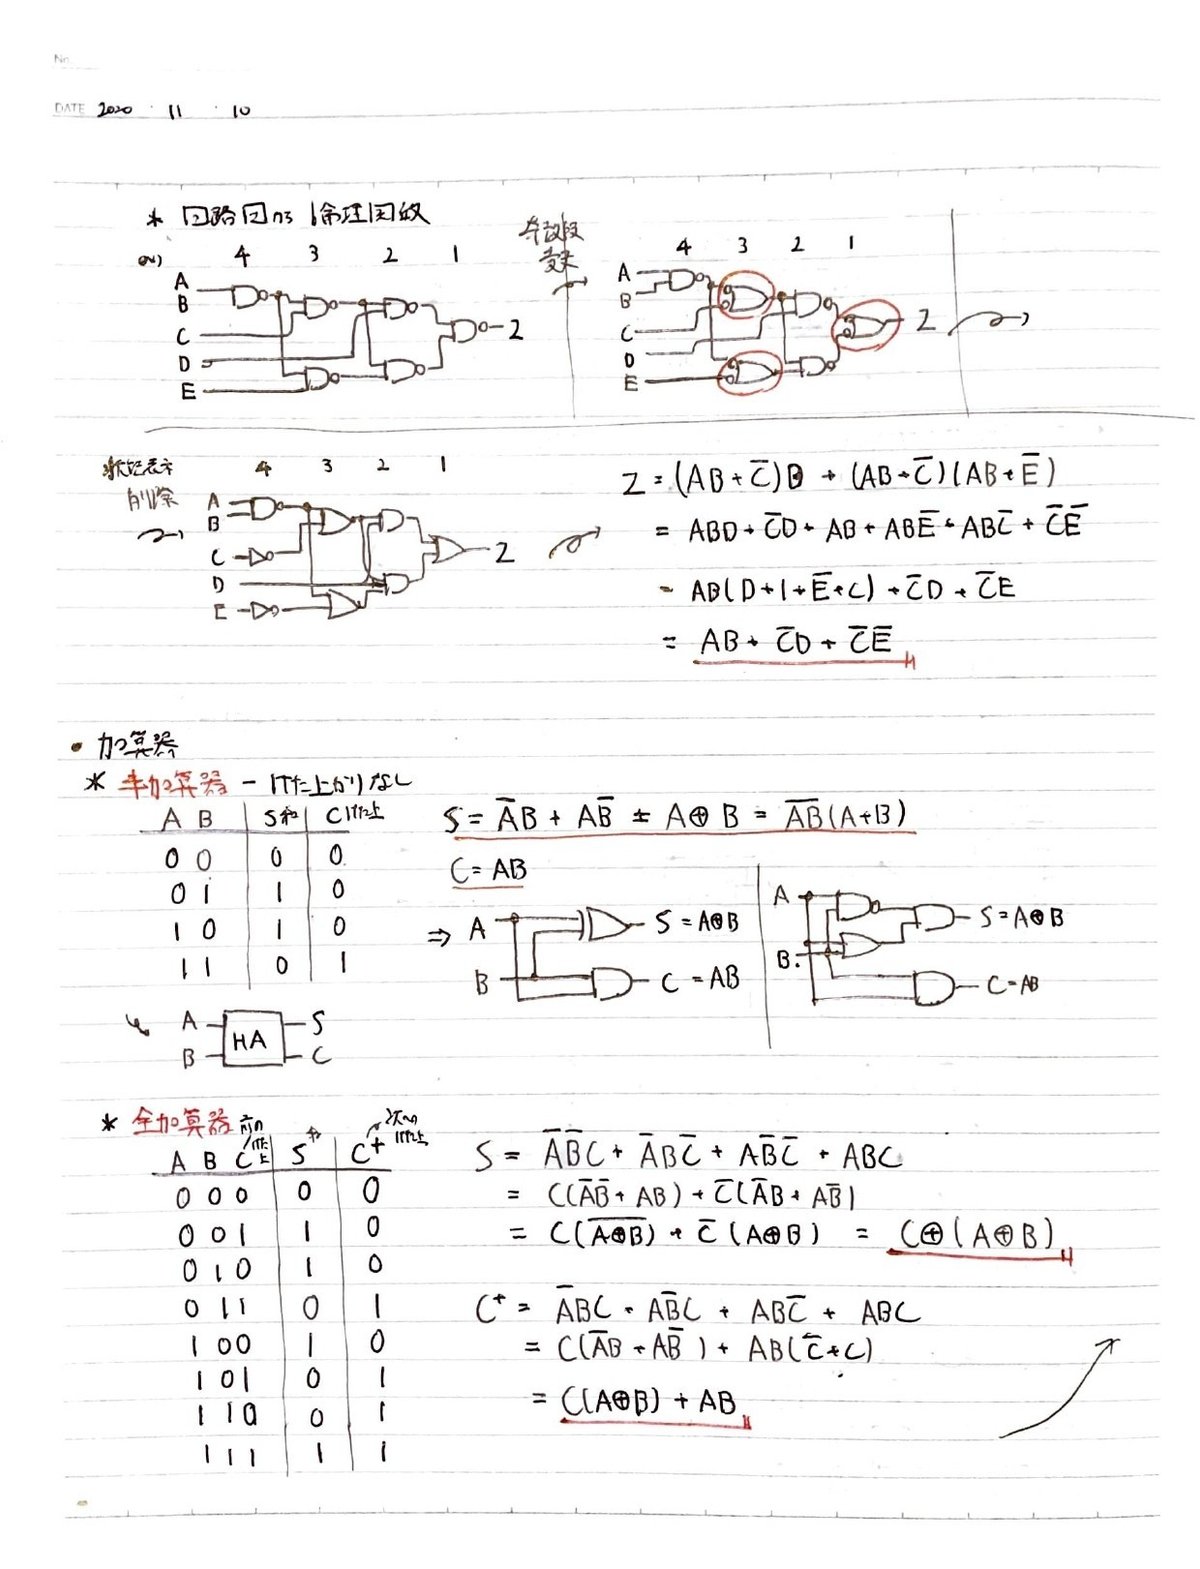 No.
DATE 2020 · 11 · 10
* 回路図から論理関数
例) 4 3 2 1
A
B
C
D
E
Z
奇数段
変更
4 3 2 1
A
B
C
D
E
Z
状態表示
削除
4 3 2 1
A
B
C
D
E
Z
Z = (AB + C̅)D + (AB + C̅)(AB + E̅)
= ABD + C̅D + AB + ABE̅ + ABC̅ + C̅E̅
= AB(D + 1 + E̅ + C) + C̅D + C̅E
= AB + C̅D + C̅E̅
• 加算器
* 半加算器 - けた上がりなし
A B S和 Cけた上
0 0 0 0
0 1 1 0
1 0 1 0
1 1 0 1
S = A̅B + AB̅ = A⊕B = A̅B̅(A+B)
C = AB
⇒ A
B
S = A⊕B
C = AB
A
B
S = A⊕B
C = AB
A
B
HA
S
C
* 全加算器 前のけた上 和 次へのけた上
A B C S C⁺
0 0 0 0 0
0 0 1 1 0
0 1 0 1 0
0 1 1 0 1
1 0 0 1 0
1 0 1 0 1
1 1 0 0 1
1 1 1 1 1
S = A̅B̅C + A̅BC̅ + AB̅C̅ + ABC
= C(A̅B̅ + AB) + C̅(A̅B + AB̅)
= C(A̅⊕̅B̅) + C̅(A⊕B) = C⊕(A⊕B)
C⁺ = A̅BC + AB̅C + ABC̅ + ABC
= C(A̅B + AB̅) + AB(C̅+C)
= C(A⊕B) + AB